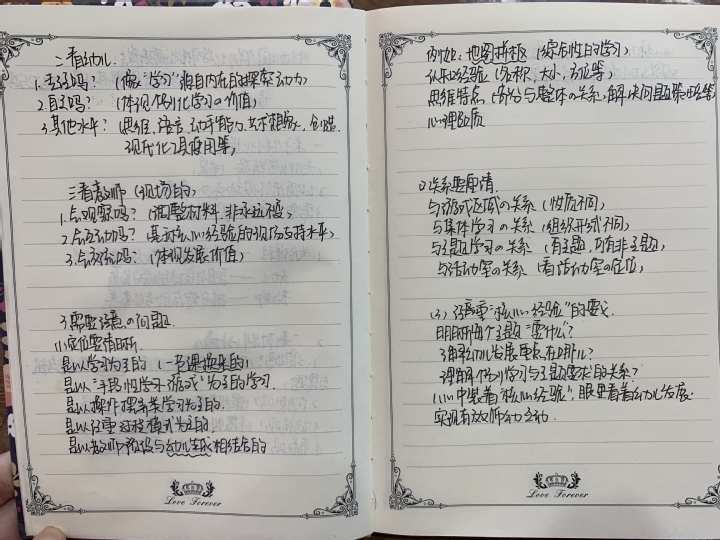 二看幼儿.
1.主动吗？（像"学习"源自内在的探索动力）
2.自主吗？（体现个别化学习の价值）
3.其他水平？（思维、语言、动手能力、共情想象、创造、
现代化工具使用等）
三看教师（现场的）
1.会观察吗？（调整材料、非永远不变）
2.会互动吗？（基于核心经验的现场支持水平）
3.会反思吗？（体现发展价值）
3.需要注意の问题
(1)定位要清晰.
是以学习为主的（一节课换来的）
是以"手段性学习、游戏"为主的学习.
是以操作探索类学习为主的.
是以分享过程模式为主的.
是以教师预设与幼儿生成相结合的
例如：地图拼板（综合性的学习）
认知经验（面积、大小、方位等）
思维特点（部分与整体の关系、解决问题策略等）
心理品质
②关系要申请.
与游戏区域の关系（性质不同）
与集体学习の关系（组织形式不同）
与主题学习の关系（有主题、可有非主题）
与活动室の关系（看活动室の定位）
(3) 注重"核心经验"的要求
明晰每个主题"要什么"？
了解幼儿发展重点在哪儿？
理解个别学习与主题要求的关系？
(4)心中装着"核心经验"，眼里看着幼儿发展.
实现有效师幼互动.
Love Forever
Love Forever